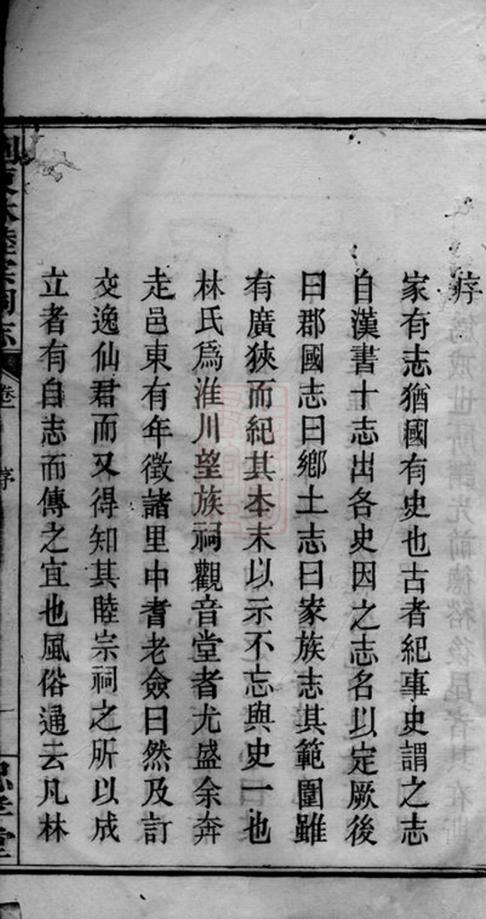 序
家有志猶國有史也古者紀事史謂之志
自漢書十志出各史因之志名以定厥後
曰郡國志曰鄉土志曰家族志其範圍雖
有廣狹而紀其本末以示不忘與史一也
林氏爲淮川望族祠觀音堂者尤盛余奔
走邑東有年徵諸里中耆老僉曰然及訂
交逸仙君而又得知其睦宗祠之所以成
立者有自志而傳之宜也風俗通云凡林
瀏東林睦宗祠志
序
忠孝堂